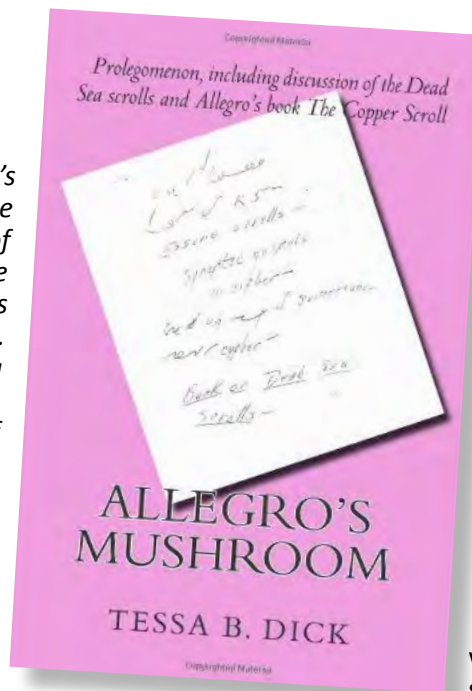 's
e
of
e
s
Copyrighted Material
Prolegomenon, including discussion of the Dead
Sea scrolls and Allegro's book The Copper Scroll
scrolls –
synoptic gospels
cipher –
never cipher –
Book or Dead Sea
Scrolls –
ALLEGRO'S
MUSHROOM
TESSA B. DICK
Copyrighted Material